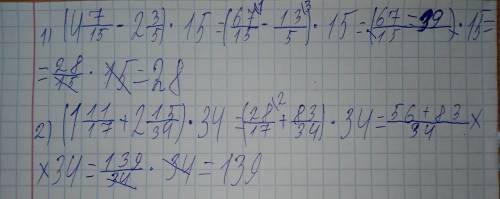 1) (4 7/15 - 2 3/5) · 15 = (67/15 \1 - 13/5 \3) · 15 = (67 - 39)/15 · 15 =
= 28/15 · 15 = 28
2) (1 11/17 + 2 15/34) · 34 = (28/17 \2 + 83/34) · 34 = (56 + 83)/34 ×
× 34 = 139/34 · 34 = 139